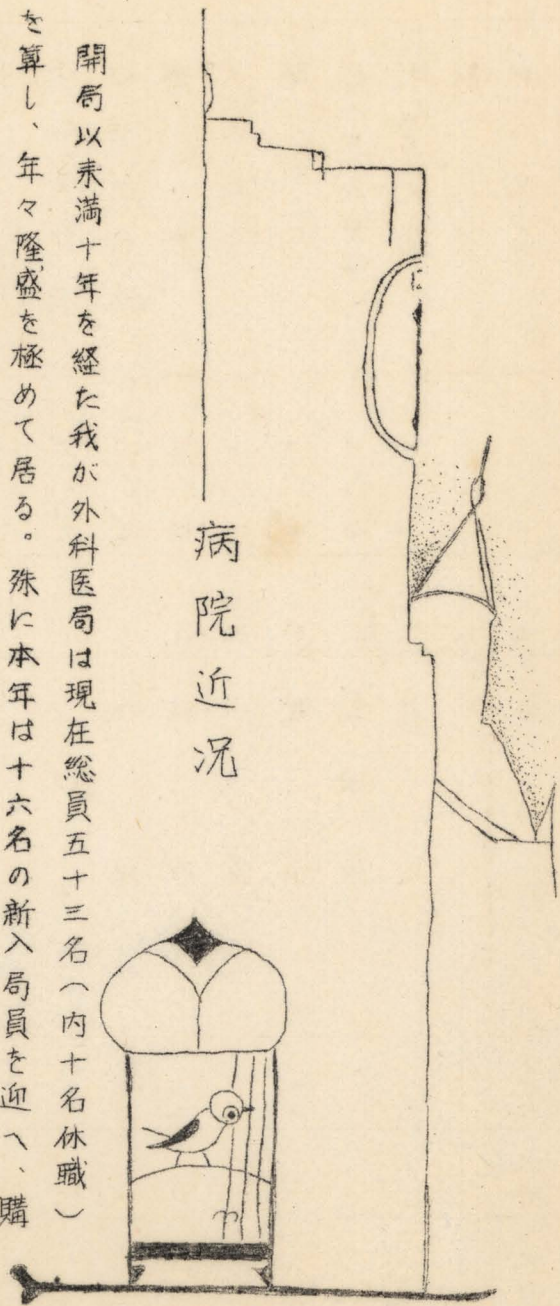 病院近況
開局以来満十年を経た我が外科医局は現在総員五十三名（内十名休職）
を算し、年々隆盛を極めて居る。殊に本年は十六名の新入局員を迎へ、購